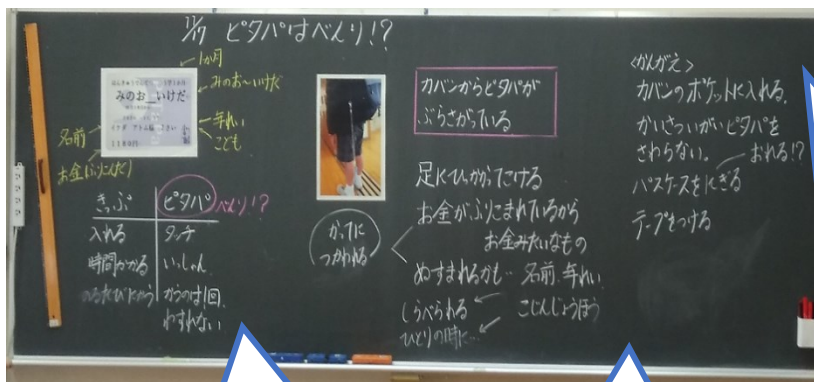 11/17 ピタパはべんり!?
1か月
みのお〜いけだ
年れい
こども
名前
お金(ふりこんだり)
みのお いけだ
1180円
きっぷ ピタパ べんり!?
入れる タッチ
時間かかる いっしゅん
のるたびにかう かうのは1回、
わすれない
かってに
つかわれる
カバンからピタパが
ぶらさがっている
足にひっかかってこける
お金がふりこまれているから
お金みたいなもの
ぬすまれるかも… 名前、年れい
しらべられる こじんじょうほう
ひとりの時に…
<かんがえ>
カバンのポケットに入れる。
かいさついがいピタパを
さわらない。 おれる!?
パスケースをにぎる
テープをつける